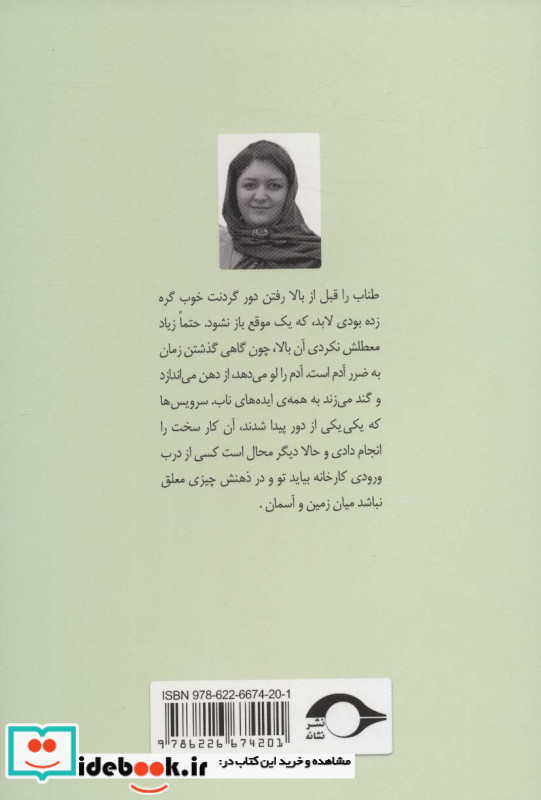 طناب را قبل از بالا رفتن دور گردنت خوب گره
زده بودی لابد، که یک موقع باز نشود. حتماً زیاد
معطلش نکردی آن بالا، چون گاهی گذشتن زمان
به ضرر آدم است. آدم را لو می‌دهد، از دهن می‌اندازد
و گند می‌زند به همه‌ی ایده‌های ناب. سرویس‌ها
که یکی‌یکی از دور پیدا شدند، آن کار سخت را
انجام دادی و حالا دیگر محال است کسی از درب
ورودی کارخانه بیاید تو و در ذهنش چیزی معلق
نباشد میان زمین و آسمان .
ISBN 978-622-6674-20-1
9 786226 674201
نشر
نشانه
مشاهده و خرید این کتاب در:
idebook.ir